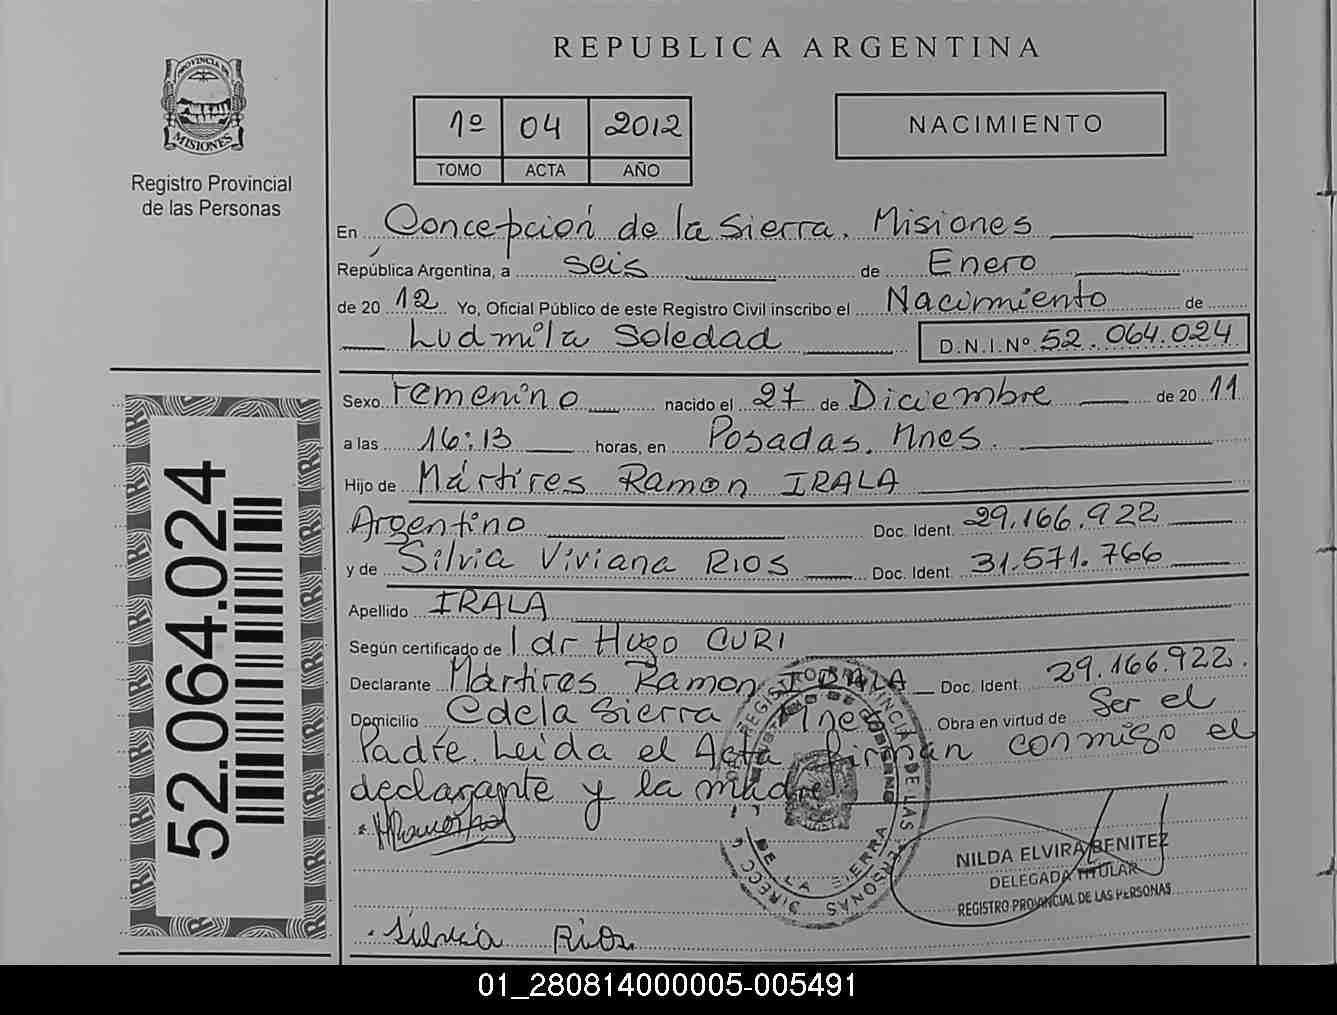 REPUBLICA ARGENTINA
PROVINCIA DE
MISIONES
Registro Provincial
de las Personas
1º 04 2012
TOMO ACTA AÑO
NACIMIENTO
En Concepción de la Sierra. Misiones
República Argentina, a seis de Enero
de 2012 Yo, Oficial Público de este Registro Civil inscribo el Nacimiento de
Ludmila Soledad D.N.I.Nº 52.064.024
Sexo Femenino nacido el 27 de Diciembre de 2011
a las 16:13 horas, en Posadas. Mnes.
Hijo de Mártires Ramon IRALA
Argentino Doc. Ident. 29.166.922
y de Silvia Viviana RIOS Doc. Ident. 31.571.766
Apellido IRALA
Según certificado de dr Hugo CURI
Declarante Mártires Ramon IRALA Doc. Ident. 29.166.922.
Domicilio C de la Sierra Obra en virtud de Ser el
Padre. Leida el Acta firman conmigo el
declarante y la madre
NILDA ELVIRA BENITEZ
DELEGADA TITULAR
REGISTRO PROVINCIAL DE LAS PERSONAS
Silvia Rios
52.064.024
01_280814000005-005491